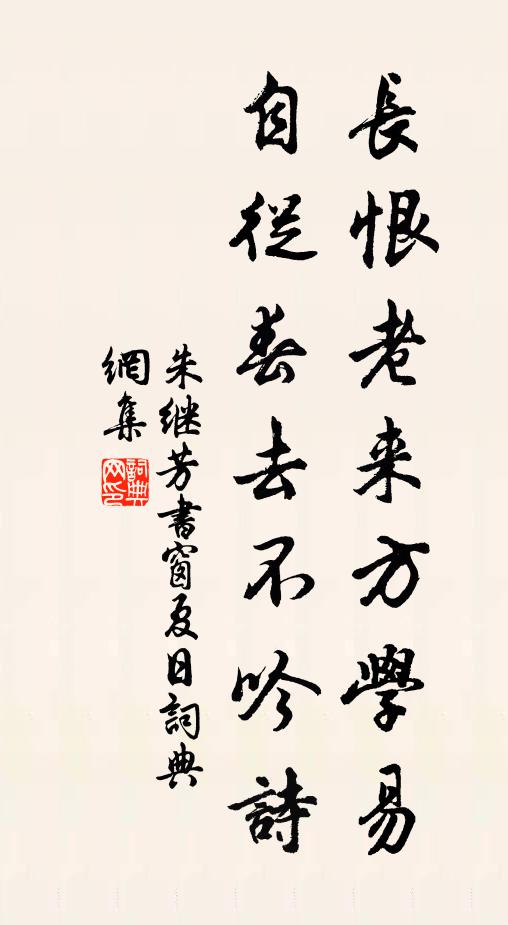 長恨老来方學易
自從春去不吟詩
朱继芳書窗夏日詞典
網集
詞典
网印